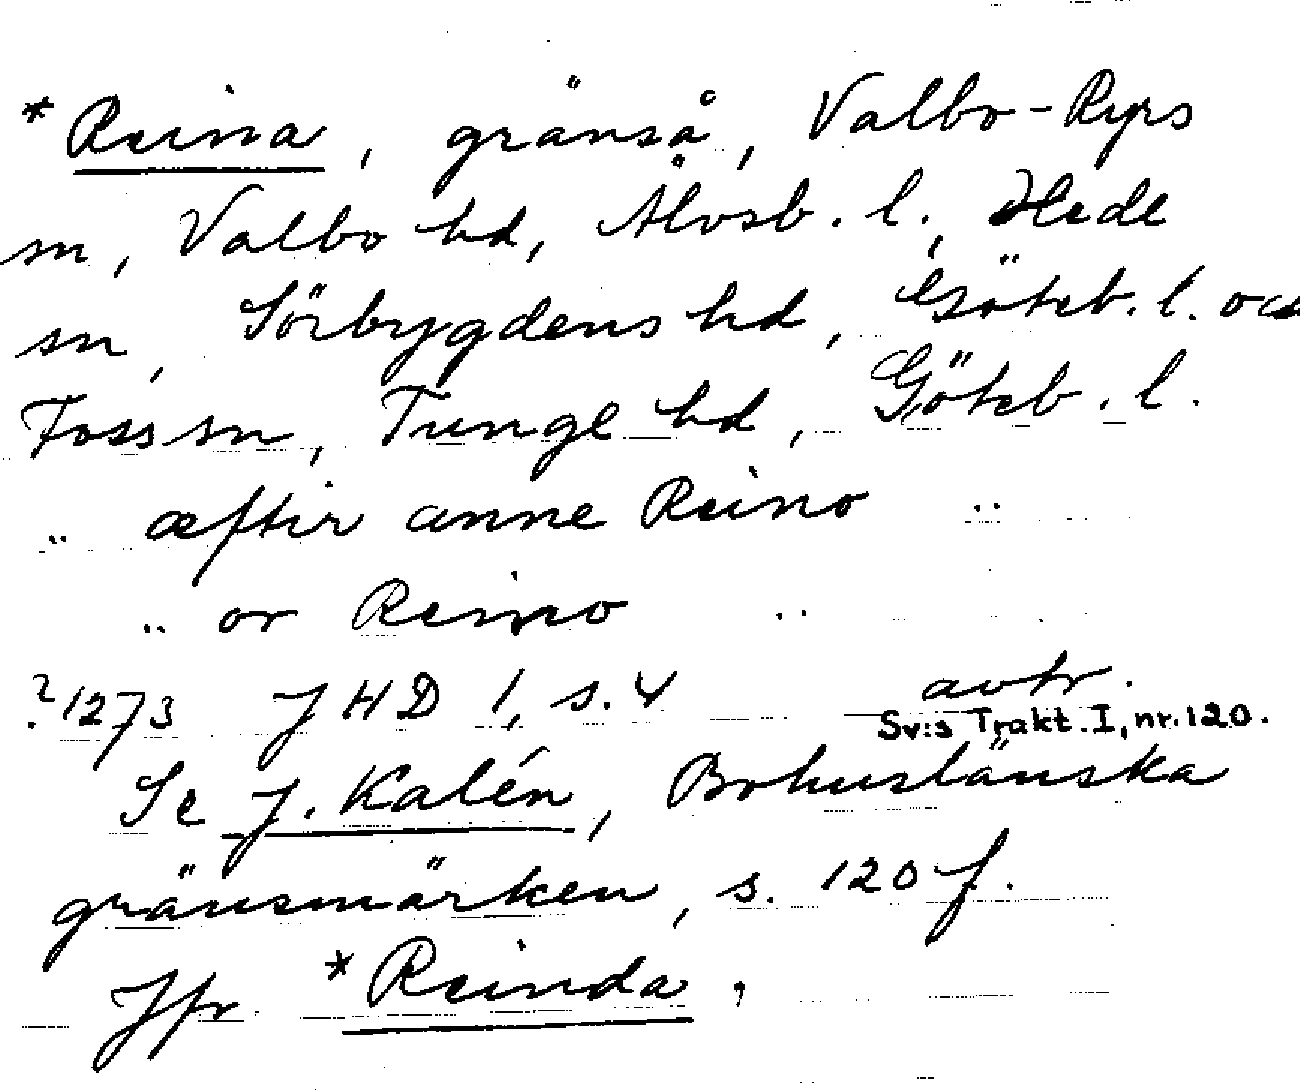 *Reina, gränså, Valbo-Ryrs
sn, Valbo hd, Älvsb. l., Hede
sn, Sörbygdens hd, Göteb. l. och
Foss sn, Tunge hd, Göteb. l.
.. æftir anne Reino ..
.. or Reino ..
?1273 JHD 1, s. 4 avtr.
Sv:s Trakt. I, nr. 120.
Se J. Kalén, Bohuslänska
gränsmärken, s. 120 f.
Jfr *Reinda,